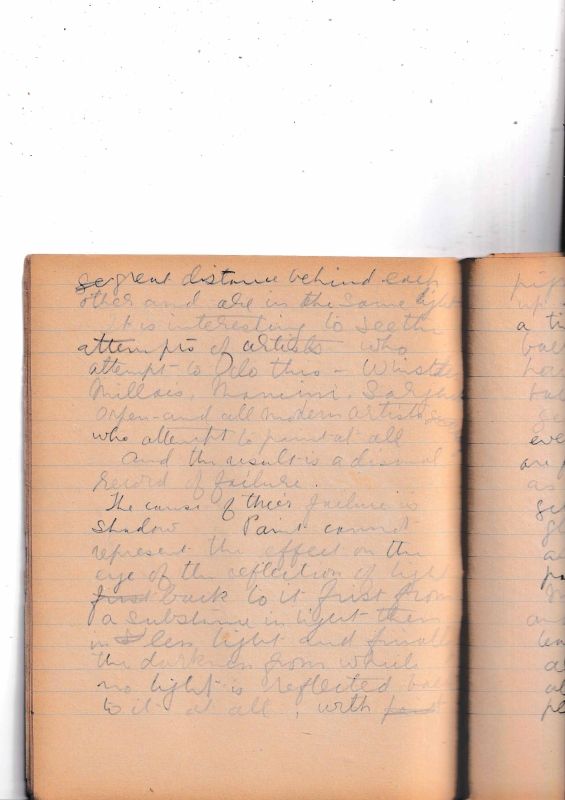 great distance behind each
other and are in the same light
It is interesting to see the
attempts of artists who
attempt to do this - Whistler
Millais, Mancini, Sargent
Orpen - and all modern artists
who attempt to paint at all
And the result is a dismal
record of failure.
The cause of their failure is
Shadow Paint cannot
represent the effect on the
eye of the reflection of light
back to it first from
a substance in light then
in less light and finally
the darkness from which
no light is reflected back
to it at all, with
up
a
as